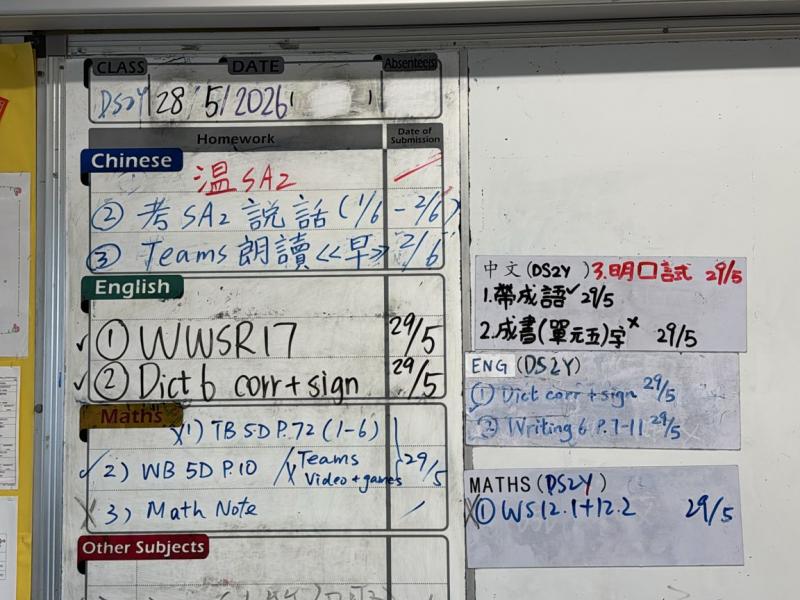 CLASS DATE Absentees
DS2Y 28/5/2026
Homework Date of Submission
Chinese
温 SA2
② 考 SA2 說話 (1/6 - 2/6)
③ Teams 朗讀 <<早>> 2/6
English
✓ ① WWSR17 29/5
✓ ② Dict 6 corr + sign 29/5
Maths
x 1) TB 5D P.72 (1-6)
✓ 2) WB 5D P.10 / x Teams Video + games 29/5
x 3) Math Note
Other Subjects
中文 (DS2Y) 3.明口試 29/5
1.帶成語✓ 29/5
2.成書(單元五)字x 29/5
ENG (DS2Y)
① Dict corr + sign 29/5
② Writing 6 P.7-11 29/5
MATHS (DS2Y)
x ① WS12.1+12.2 29/5